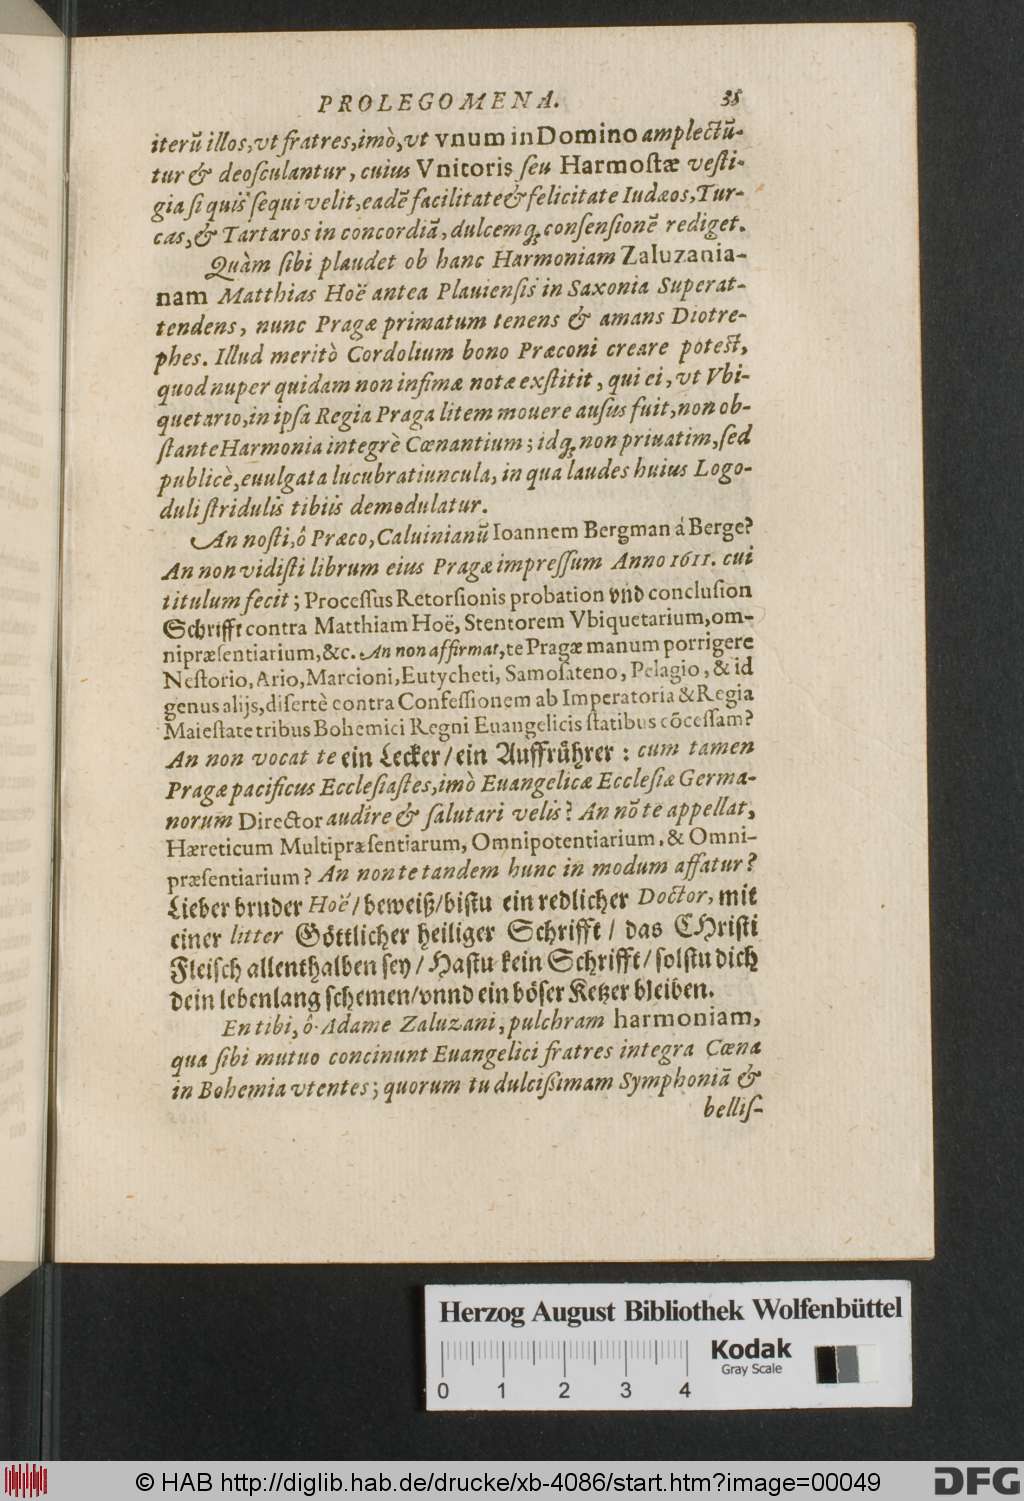 PROLEGOMENA. 35
iterũ illos, vt fratres, imò, vt vnum in Domino amplectũ-
tur & deosculantur, cuius Vnitoris seu Harmostæ vesti-
gia si quis sequi velit, eadẽ facilitate & felicitate Iudæos, Tur-
cas, & Tartaros in concordiã, dulcemq; consensionẽ rediget.
Quàm sibi plaudet ob hanc Harmoniam Zaluzania-
nam Matthias Hoë antea Plauiensis in Saxonia Superat-
tendens, nunc Pragæ primatum tenens & amans Diotre-
phes. Illud meritò Cordolium bono Præconi creare potest,
quod nuper quidam non infimæ notæ exstitit, qui ei, vt Vbi-
quetario, in ipsa Regia Praga litem mouere ausus fuit, non ob-
stante Harmonia integrè Cœnantium; idq; non priuatim, sed
publicè, euulgata lucubratiuncula, in qua laudes huius Logo-
duli stridulis tibiis demodulatur.
An nosti, ô Præco, Caluinianũ Ioannem Bergman á Berge?
An non vidisti librum eius Pragæ impressum Anno 1611. cui
titulum fecit; Processus Retorsionis probation vnd conclusion
Schrifft contra Matthiam Hoë, Stentorem Vbiquetarium, om-
nipræsentiarium, &c. An non affirmat, te Pragæ manum porrigere
Nestorio, Ario, Marcioni, Eutycheti, Samosateno, Pelagio, & id
genus alijs, disertè contra Confessionem ab Imperatoria & Regia
Maiestate tribus Bohemici Regni Euangelicis statibus cõcessam?
An non vocat te ein Lecker / ein Auffrührer : cum tamen
Pragæ pacificus Ecclesiastes, imò Euangelicæ Ecclesiæ Germa-
norum Director audire & salutari velis? An nõ te appellat,
Hæreticum Multipræsentiarum, Omnipotentiarium, & Omni-
præsentiarium? An non te tandem hunc in modum affatur?
Lieber bruder Hoë / beweiß / bistu ein redlicher Doctor, mit
einer litter Göttlicher heiliger Schrifft / das CHristi
Fleisch allenthalben sey / Hastu kein Schrifft / solstu dich
dein lebenlang schemen / vnnd ein böser Ketzer bleiben.
En tibi, ô Adame Zaluzani, pulchram harmoniam,
qua sibi mutuo concinunt Euangelici fratres integra Cœna
in Bohemia vtentes; quorum tu dulcissimam Symphoniã &
bellis-
Herzog August Bibliothek Wolfenbüttel
Kodak
Gray Scale
0 1 2 3 4
© HAB http://diglib.hab.de/drucke/xb-4086/start.htm?image=00049
DFG